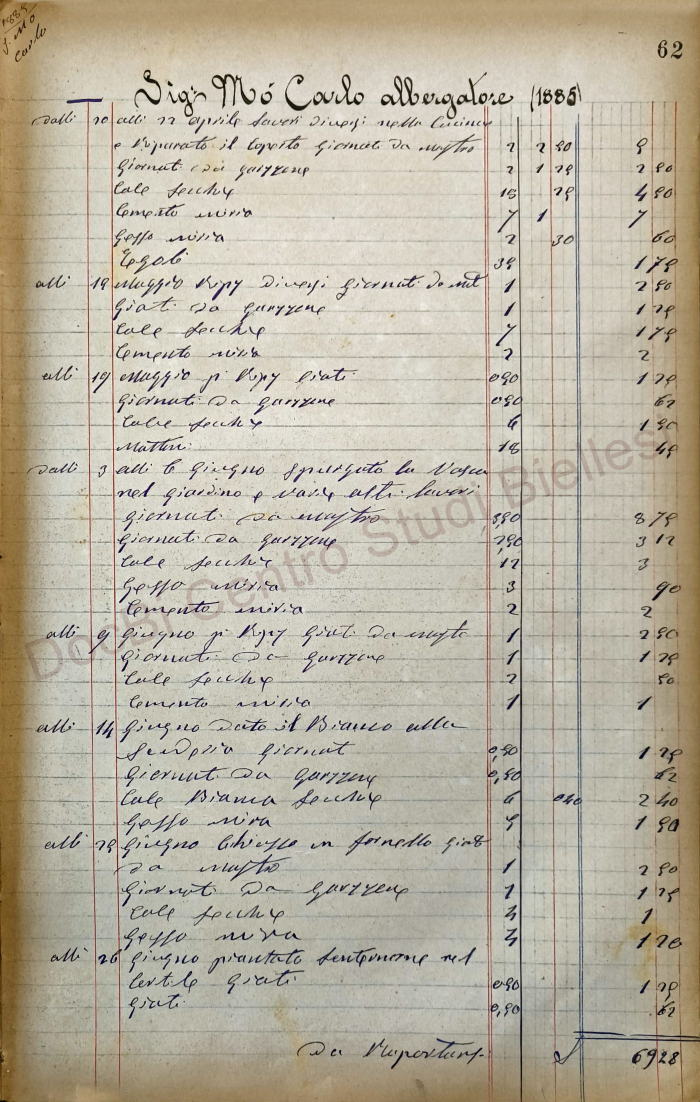 1885
S. Mò
Carlo
62
Sig: Mó Carlo albergatore (1885)
dalli 20 alli 22 aprile lavori diversi nella Cucina
e Riparato il Coperto Giornati da Mastro 2 2 50 5
Giornati da garzzone 2 1 25 2 50
Cale Secchie 18 25 4 50
Cemento miria 7 1 7
Gesso miria 2 30 60
Tegoli 35 1 75
alli 12 Maggio diversi Giornati da 1 2 50
Giati da garzzone 1 1 25
Cale Secchie 7 1 75
Cemento miria 2 2
alli 19 Maggio pi Giati 0 50 1 25
Giornati da garzzone 0 50 62
Cale Secchie 6 1 50
Mattoni 18 45
dalli 3 alli 6 Giugno Spurgato la Vasca
nel giardino e varie altri lavori
Giornati da Mastro 3,50 8 75
Giornati da garzzone 2,50 3 12
Cale Secchie 12 3
Gesso miria 3 90
Cemento miria 2 2
alli 9 Giugno pi Giati da 1 2 50
Giornati da Garzzone 1 1 25
Cale Secchie 2 50
Cemento miria 1 1
alli 14 Giugno dato il Bianco alla
Giornat 0,50 1 25
Giornati da garzzone 0,50 62
Cale Bianca Secchie 6 0 40 2 40
Gesso mira 5 1 50
alli 25 Giugno in fornello
da mastro 1 2 50
Giornati da Garzzone 1 1 25
Cale Secchie 4 1
Gesso miria 4 1 20
alli 26 Giugno piantato nel
Giati 0,50 1 25
Giati 0,50 62
Da 6928
DocBi Centro Studi Biellesi